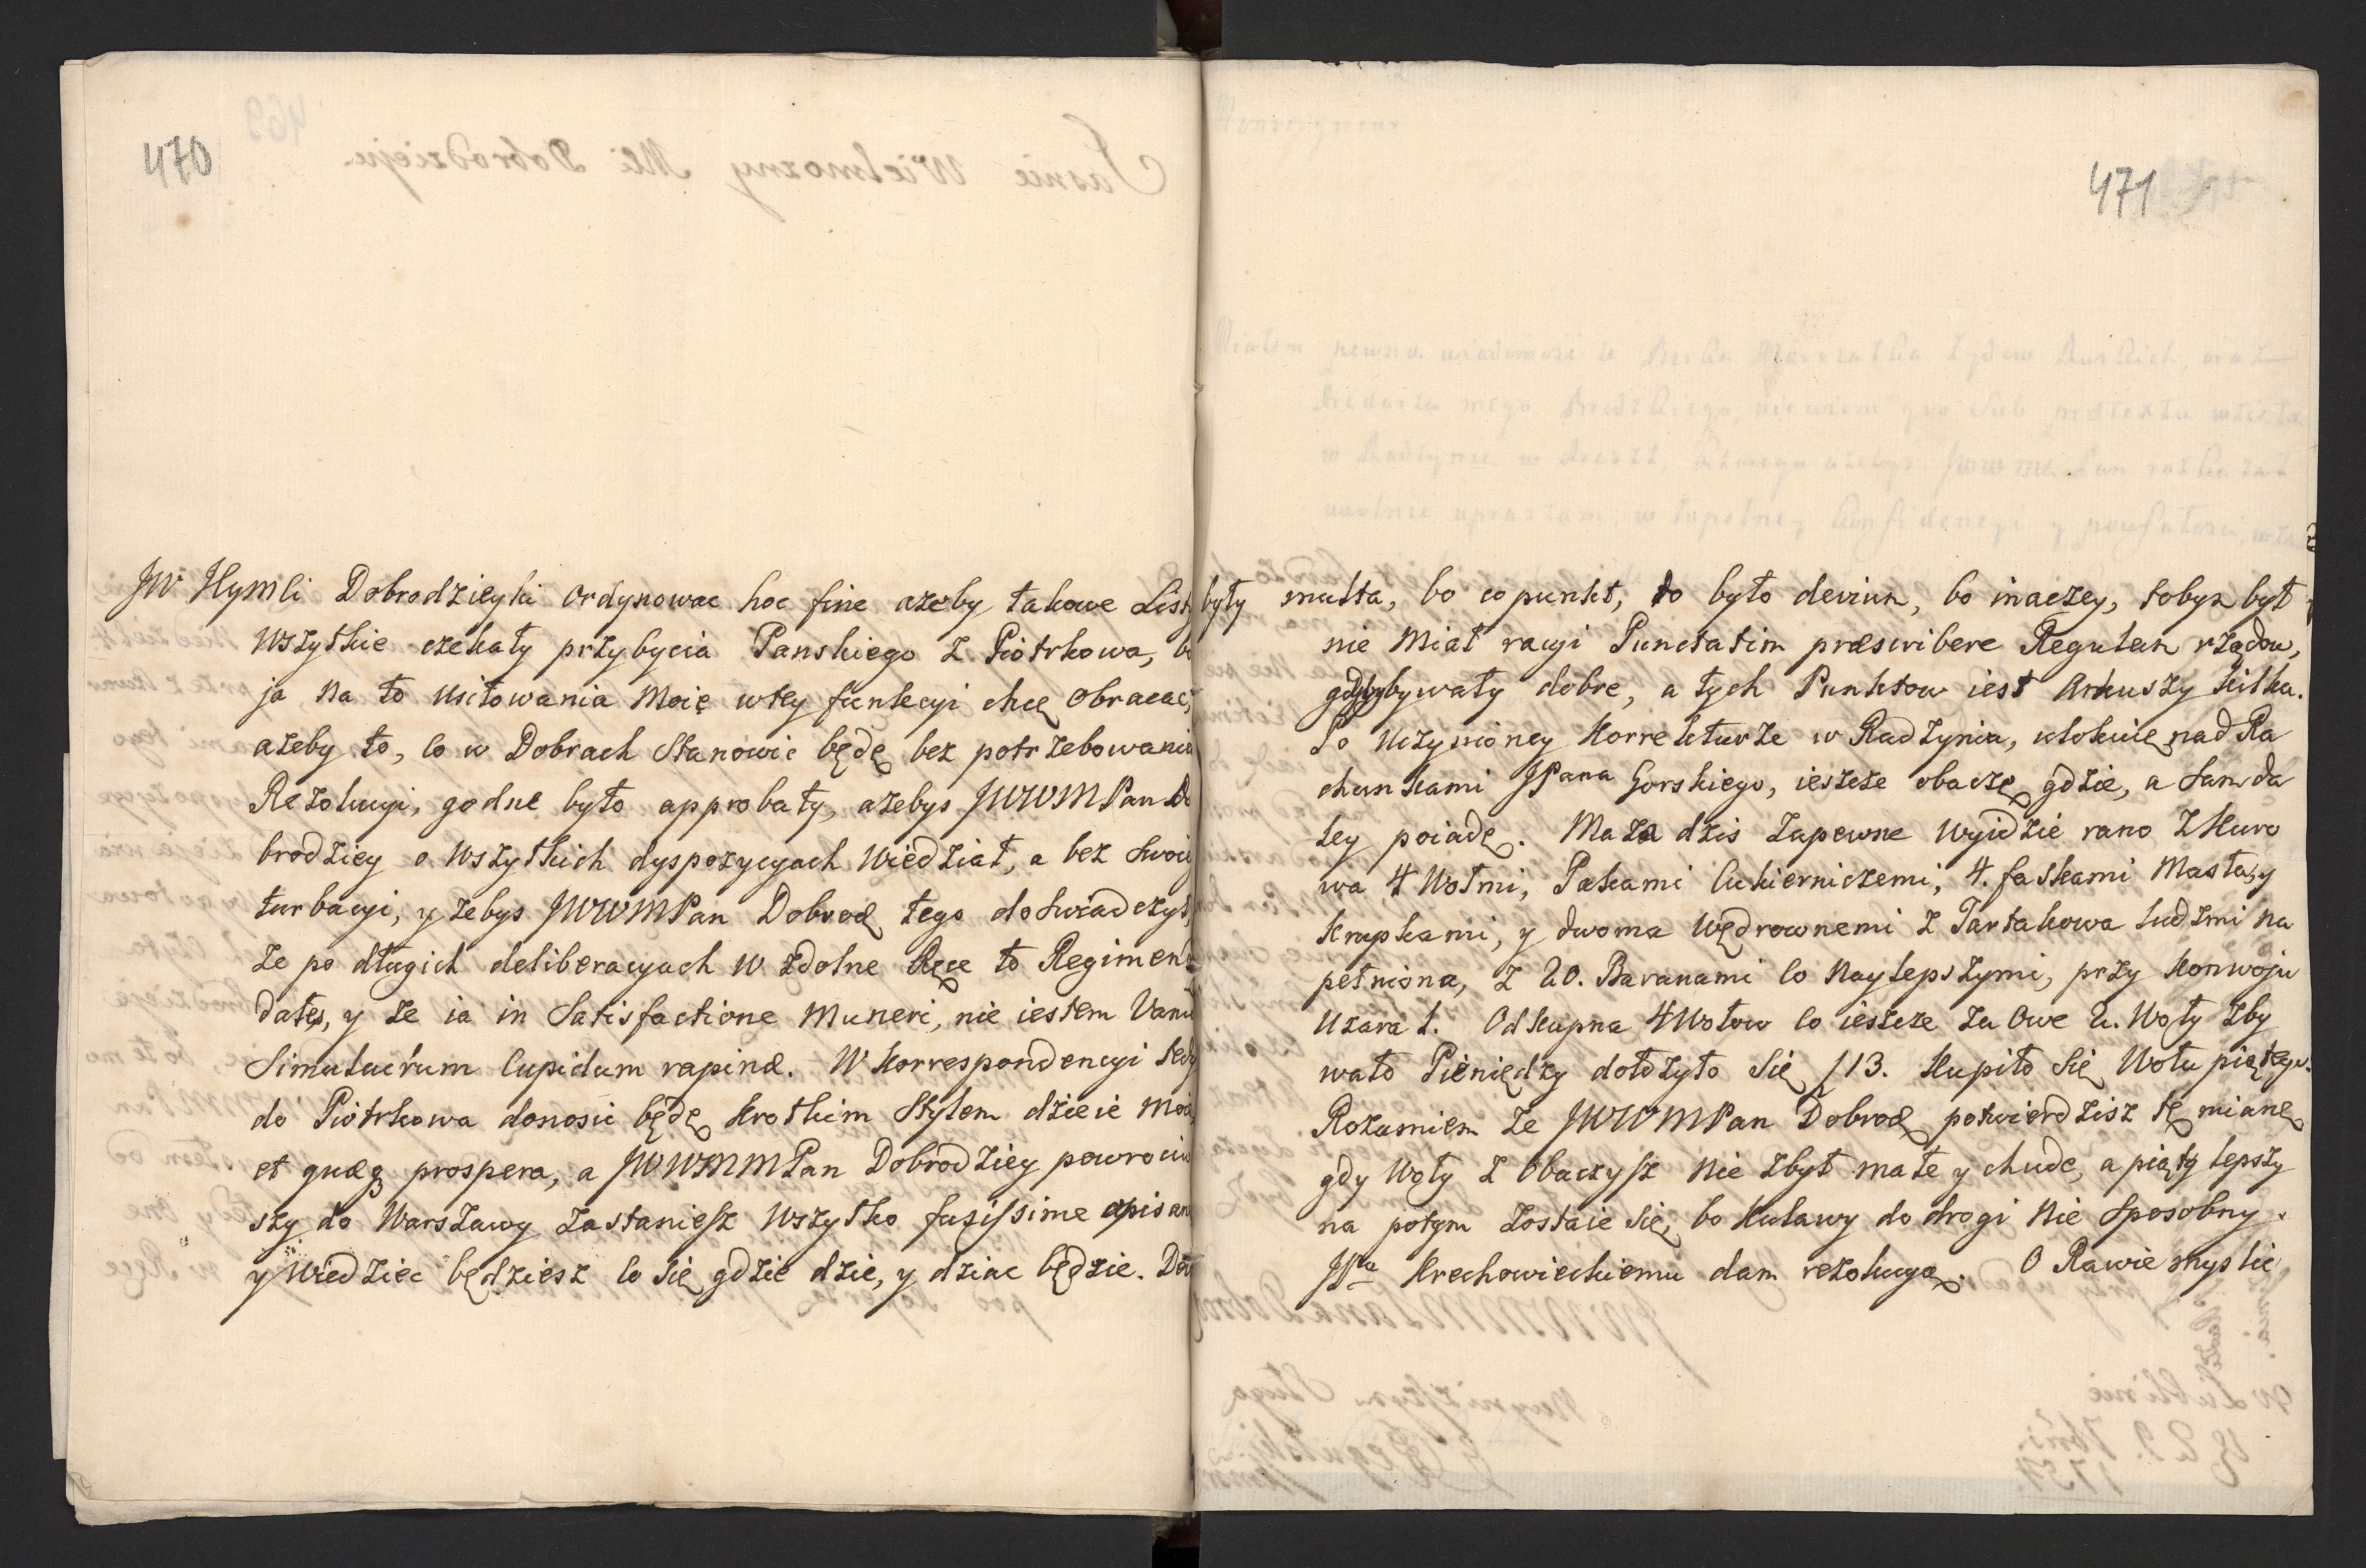 470
JW Hymli Dobrodzieyki ordynowac hoc fine azeby takowe List
wszytkie czekały przybycia Panskiego z Piotrkowa, b
ja na to usiłowania moie w tey funkcyi chcę obracac,
azeby to, co w Dobrach stanowic będę bez potrzebowania
Rezolucyi, godne było approbaty, azebys JWWMPan Do
brodziey o wszytkich dyspozycyach wiedział, a bez swoiey
turbacyi, y zebys JWWMPan Dobrod tego doswiadczył,
ze po długich deliberacyach w zdolne Ręce to Regimen
dałes, y ze ia in Satisfactione muneri, nie iestem Vanu
Simulacrum Cupidum rapinæ. W korrespondencyi tedy
do Piotrkowa donosic będę krotkim Stylem dzieie moie
et quæq prospera, a JWWMMPan Dobrodziey powrociw
szy do Warszawy zastaniesz wszytko fusissime opisan
y wiedziec będziesz co się gdzie dzie, y dziac będzie. Do
471
były multa, bo co punkt, to było devium, bo inaczey, tobym był
nie miał racyi Punctatim præscribere Regulam rządow,
gdyby bywały dobre, a tych Punktow iest Arkuszy kilka.
Po uczynioney korrekturze w Radzyniu, nad Ra
chunkami JPana Gorskiego, ieszcze obaczę gdzie, a Sam da
ley poiadę. Maza dzis zapewne wyidzie rano z Kuro
wa 4 Wołmi, Pakami Cukierniczemi, 4. faskami Masła, y
krupkami, y dwoma wędrownemi z Tartakowa ludzmi na
pełniona, z 20. Baranami co naylepszymi, przy konwoju
Uzara 1. Odkupna 4 Wołow co ieszcze za Owe 2. Woły zby
wało Pieniędzy dołozyło się f 13. kupiło się Wołu piątego.
Rozumiem ze JWWMPan Dobrod potwierdzisz tę mianę
gdy woły zobaczysz nie zbyt małe y chude, a piąty lepszy
na potym zostaie się, bo kulawy do drogi nie sposobny.
JPu Krechowieckiemu dam rezolucyą. O Rawie myslic